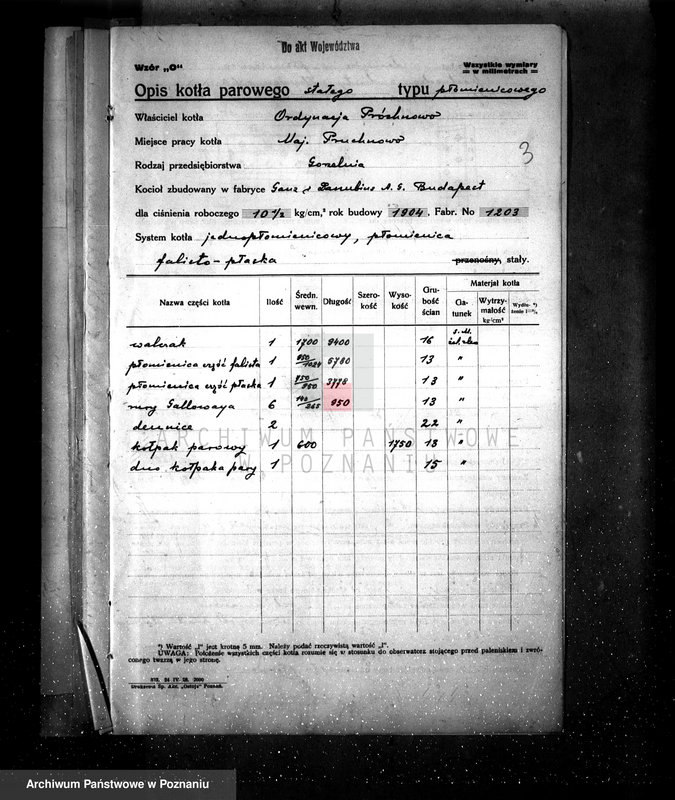 Do akt Województwa
Wzór „C“
Wszystkie wymiary
w milimetrach
Opis kotła parowego stałego typu płomienicowego
Właściciel kotła Ordynacja Próchnowo
Miejsce pracy kotła Maj. Pruchnowo
3
Rodzaj przedsiębiorstwa Gorzelnia
Kocioł zbudowany w fabryce Ganz & Danubius A. G. Budapest
dla ciśnienia roboczego 10 1/2 kg/cm,² rok budowy 1904. Fabr. No 1203
System kotła jednopłomienicowy, płomienica
falisto-płaska przenośny, stały.
Nazwa części kotła Ilość Średn. wewn. Długość Szerokość Wysokość Grubość ścian Materjał kotła
Gatunek Wytrzymałość kg/cm²
walczak 1 1700 9400 16
płomienica część falista 1 950/1024 5780 13 "
płomienica część płaska 1 750/950 3778 13 "
rury Gallowaya 6 140/265 950 13 "
dennice 2 22 "
kołpak parowy 1 600 1750 13 "
dno kołpaka pary 1 15 "
ARCHIWUM PAŃSTWOWE
W POZNANIU
*) Wartość „l“ jest krotną 5 mm. Należy podać rzeczywistą wartość „l“.
UWAGA: Położenie wszystkich części kotła rozumie się w stosunku do obserwatora stojącego przed paleniskiem i zwróconego twarzą w jego stronę.
Drukarnia Sp. Akc. „Ostoja“ Poznań.
Archiwum Państwowe w Poznaniu